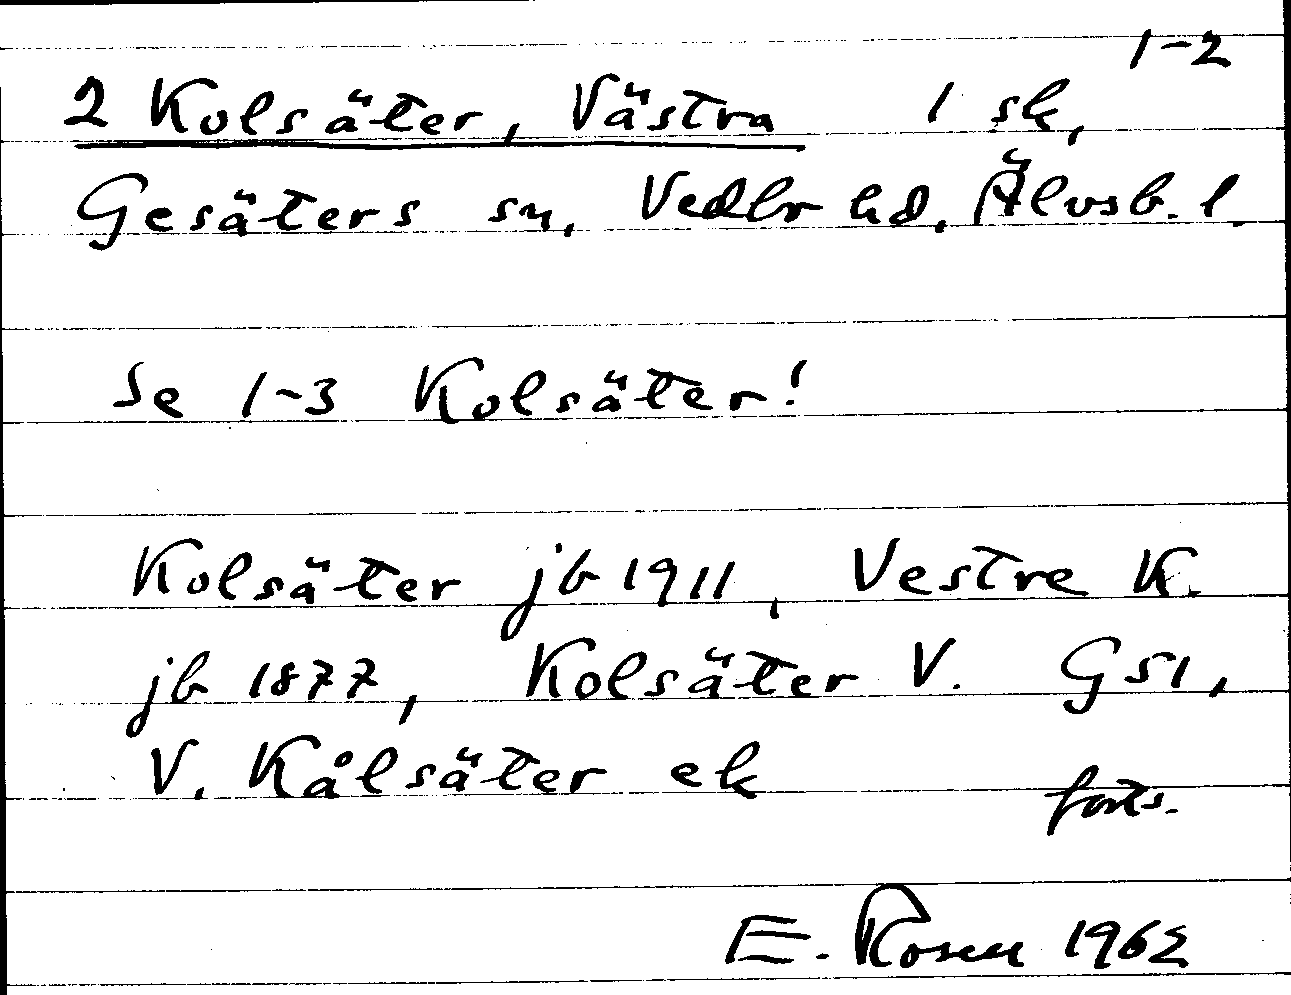 1-2
2 Kolsäter, Västra 1 sk,
Gesäters sn, Vedbr hd, Älvsb. l.
Se 1-3 Kolsäter!
Kolsäter jb 1911, Vestre K.
jb 1877, Kolsäter V. GS1,
V. Kålsäter ek
forts.
E. Rosen 1962